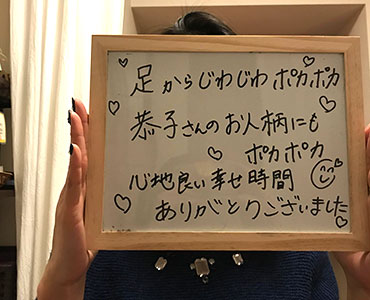 足からじわじわポカポカ
恭子さんのお人柄にも
ポカポカ
心地良い幸せ時間
ありがとうございました